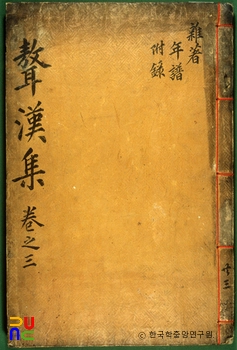 雜著
年譜
附錄
聱漢集 卷之三
ⓒ한국학중앙연구원